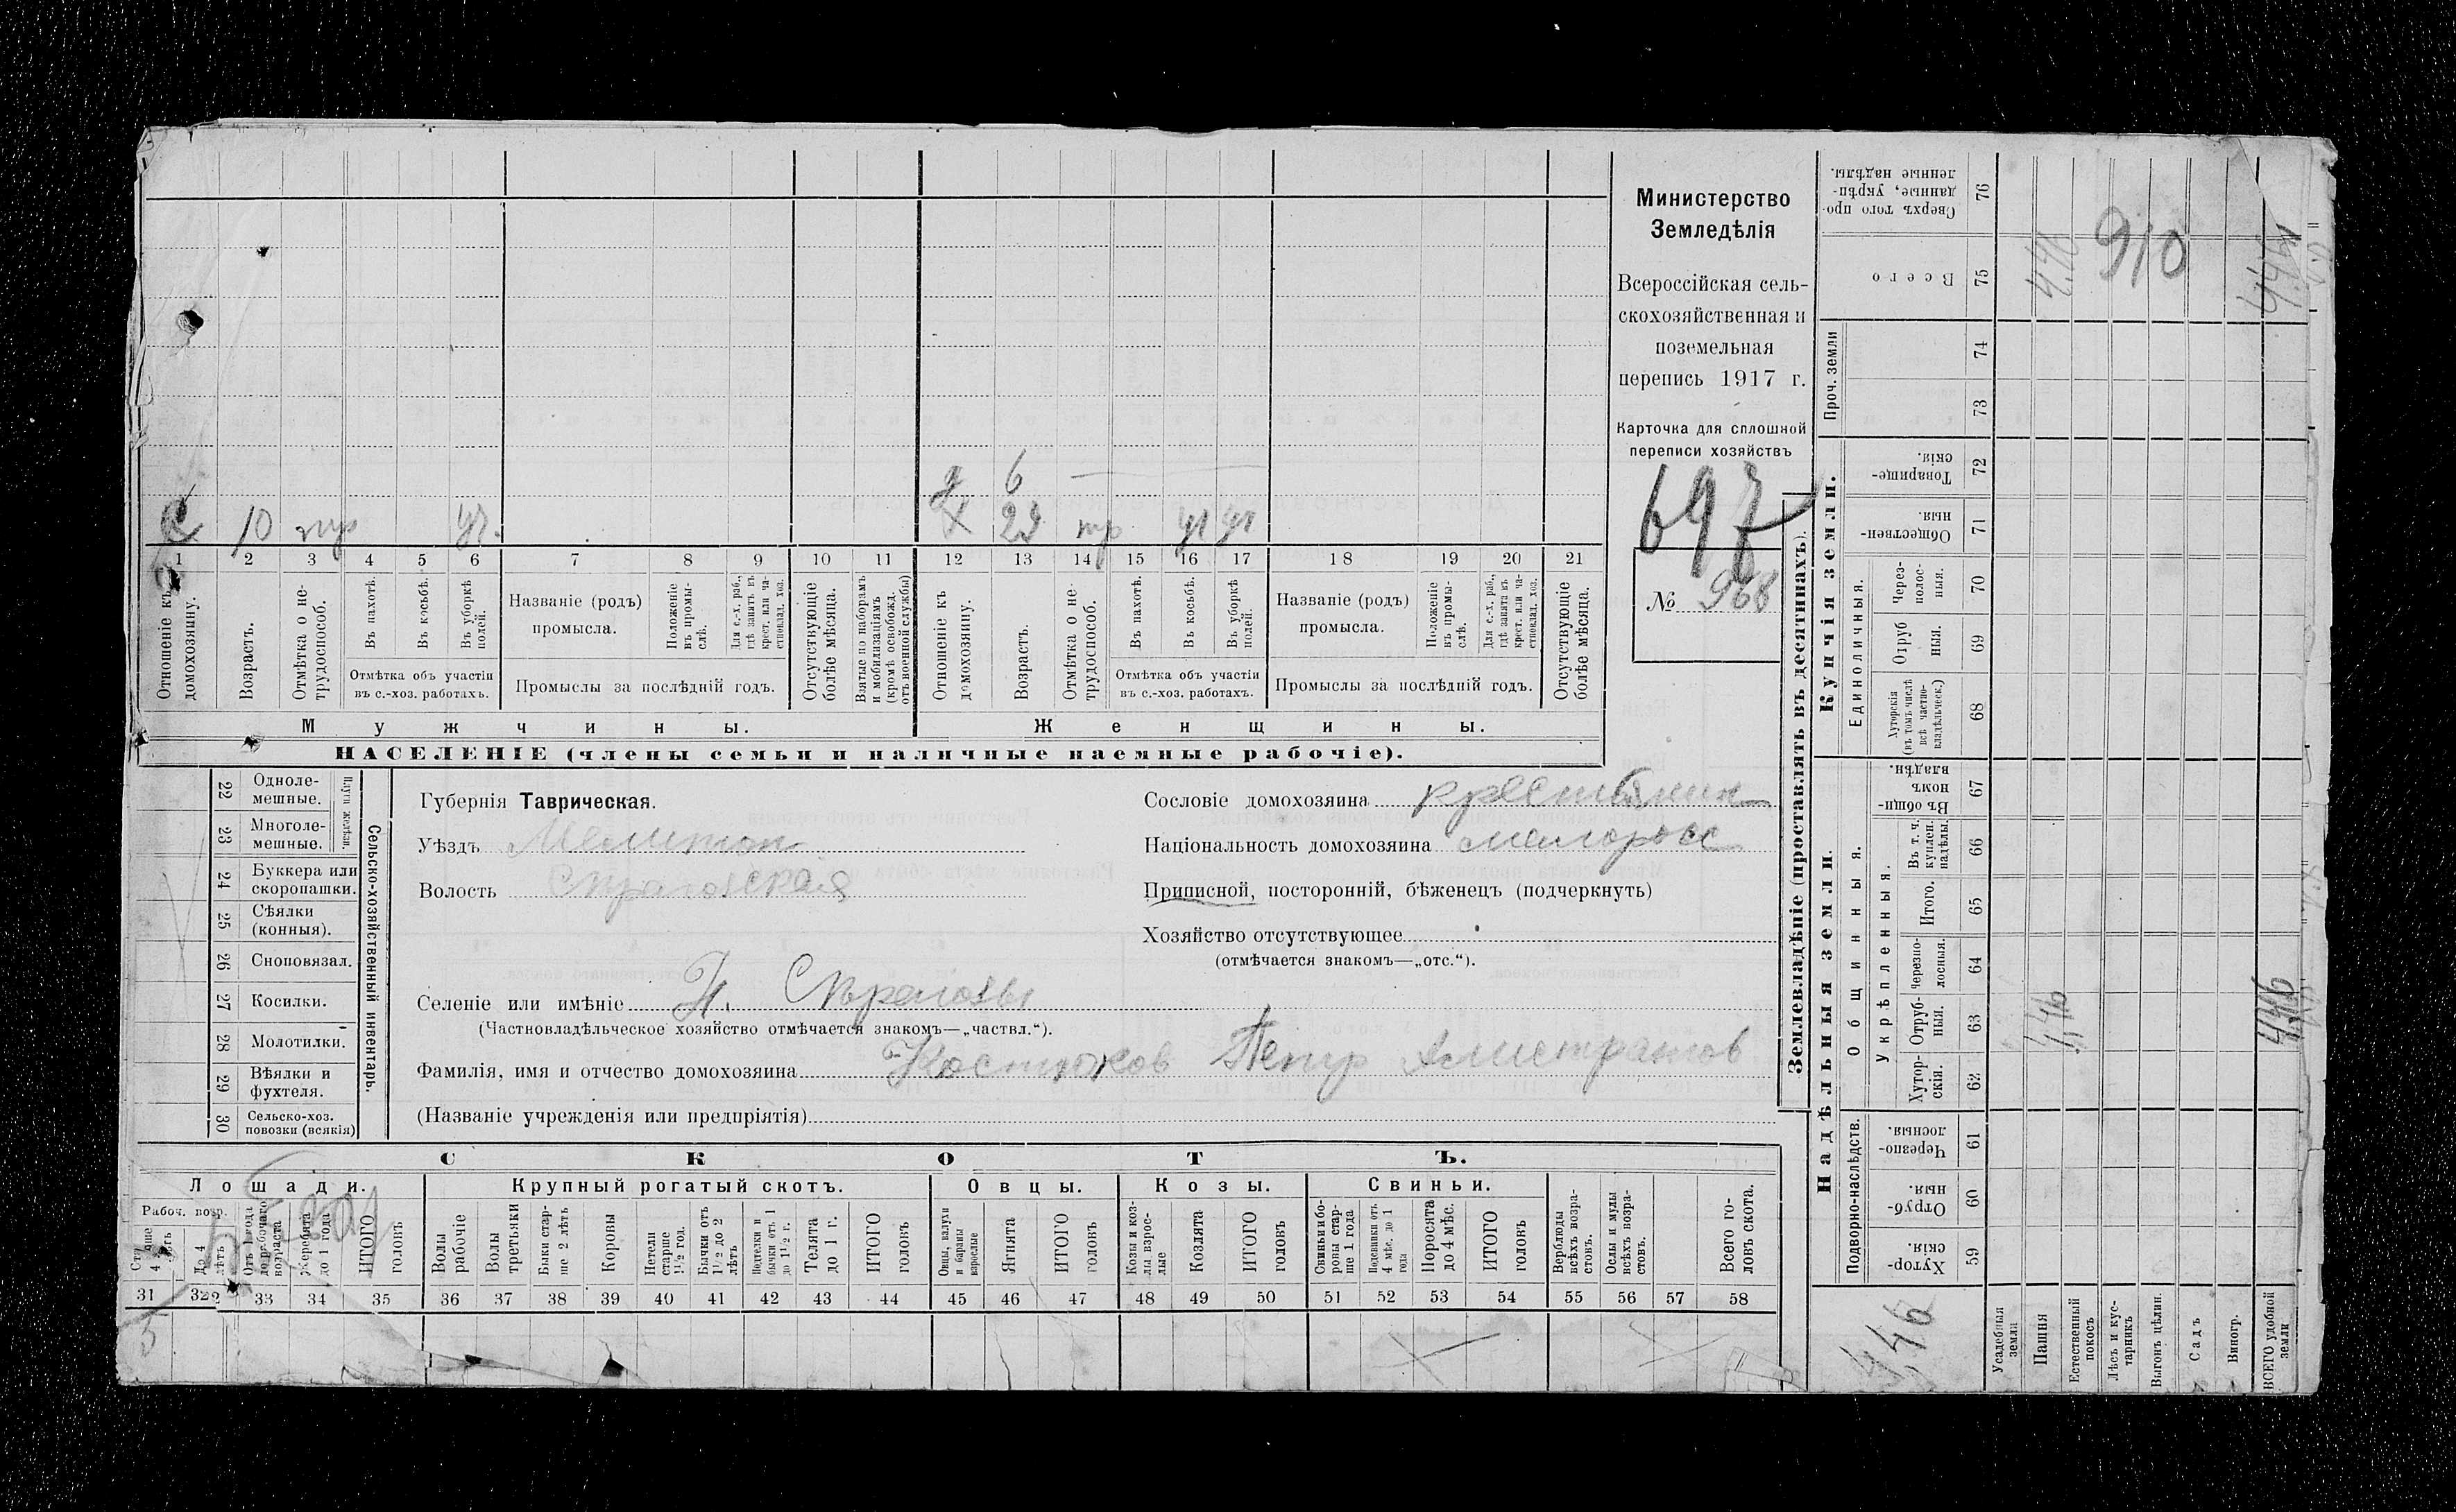 Министерство
Земледѣлія
Всероссійская сель-
скохозяйственная и
поземельная
перепись 1917 г.
Карточка для сплошной
переписи хозяйствъ
697
№ 968
6
10 23
1 2 3 4 5 6 7 8 9 10 11 12 13 14 15 16 17 18 19 20 21
Отношеніе къ домохозяину.
Возрастъ.
Отмѣтка о не-трудоспособ.
Въ пахотѣ.
Въ косьбѣ.
Въ уборкѣ полей.
Отмѣтка объ участіи
въ с.-хоз. работахъ.
Названіе (родъ)
промысла.
Положеніе въ промы-слѣ.
Для с.-х. раб., гдѣ занятъ въ крест. или ча-стновлад. хоз.
Промыслы за послѣдній годъ.
Отсутствующіе болѣе мѣсяца.
Взятые по наборамъ и мобилизаціямъ (кромѣ освобожд. отъ военной службы)
Отношеніе къ домохозяину.
Возрастъ.
Отмѣтка о не трудоспособ.
Въ пахотѣ.
Въ косьбѣ.
Въ уборкѣ полей.
Отмѣтка объ участіи
въ с.-хоз. работахъ.
Названіе (родъ)
промысла.
Положеніе въ промы-слѣ.
Для с.-х. раб., гдѣ занята въ крест. или ча-стновлад. хоз.
Промыслы за послѣдній годъ.
Отсутствующіе болѣе мѣсяца.
Мужчины. Женщины.
НАСЕЛЕНІЕ (члены семьи и наличные наемные рабочіе).
22 Одноле-мешные.
23 Многоле-мешные.
Плуги желѣзн.
24 Буккера или скоропашки.
25 Сѣялки (конныя).
26 Сноповязал.
27 Косилки.
28 Молотилки.
29 Вѣялки и фухтеля.
30 Сельско-хоз. повозки (всякія)
Сельско-хозяйственный инвентарь.
Губернія Таврическая.
Уѣздъ Мелитоп
Волость
Селеніе или имѣніе Н.
(Частновладѣльческое хозяйство отмѣчается знакомъ—„частвл.“).
Фамилія, имя и отчество домохозяина Костюков Петр
(Названіе учрежденія или предпріятія)
Сословіе домохозяина крестьянин
Національность домохозяина малоросс
Приписной, посторонній, бѣженецъ (подчеркнуть)
Хозяйство отсутствующее
(отмѣчается знакомъ—„отс.“).
СКОТЪ.
Лошади. Крупный рогатый скотъ. Овцы. Козы. Свиньи.
Рабоч. возр.
До 4 лѣтъ
Жеребята до 1 года
ИТОГО головъ
Волы рабочіе
Волы третьяки
Быки стар-ше 2 лѣтъ
Коровы
Нетели старше 1½ год.
Бычки отъ 1½ до 2 лѣтъ
Подтелки и бычки отъ 1 до 1½ г.
Телята до 1 г.
ИТОГО головъ
Овцы, валухи и бараны взрослые
Ягнята
ИТОГО головъ
Козы и коз-лы взрос-лые
Козлята
ИТОГО головъ
Свиньи и бо-ровы стар-ше 1 года
Подсвинки отъ 4 мѣс. до 1 года
Поросята до 4 мѣс.
ИТОГО головъ
Верблюды всѣхъ возра-стовъ.
Ослы и мулы всѣхъ возра-стовъ.
Всего го-ловъ скота.
31 32 33 34 35 36 37 38 39 40 41 42 43 44 45 46 47 48 49 50 51 52 53 54 55 56 57 58
Землевладѣніе (проставлять въ десятинахъ).
Купчія земли.
Надѣльныя земли.
76 Сверхъ того про-данные, укрѣп-ленные надѣлы.
75 Всего
4,46 910 4,46
Проч. земли
74
73
72 Товарище-скія.
71 Обществен-ныя.
Единоличныя.
70 Через-полос-ныя.
69 Отруб ныя.
68 Хуторскія (въ томъ числѣ всѣ частно-владѣльческ.)
Общинныя.
67 Въ общи-номъ владѣн.
Укрѣпленныя.
66 Въ т. ч. куплен. надѣлы.
65 Итого.
64 Черезпо-лосныя.
63 Отруб-ныя.
4,46 4,46
62 Хутор-скія.
Подворно-наслѣдств.
61 Черезпо-лосныя.
60 Отруб-ныя.
59 Хутор-скія.
4,46
Усадебная земля
Пашня
Естественный покосъ
Лѣсъ и кус-тарникъ
Выгонъ цѣлин.
Садъ
Виногр.
ВСЕГО удобной земли